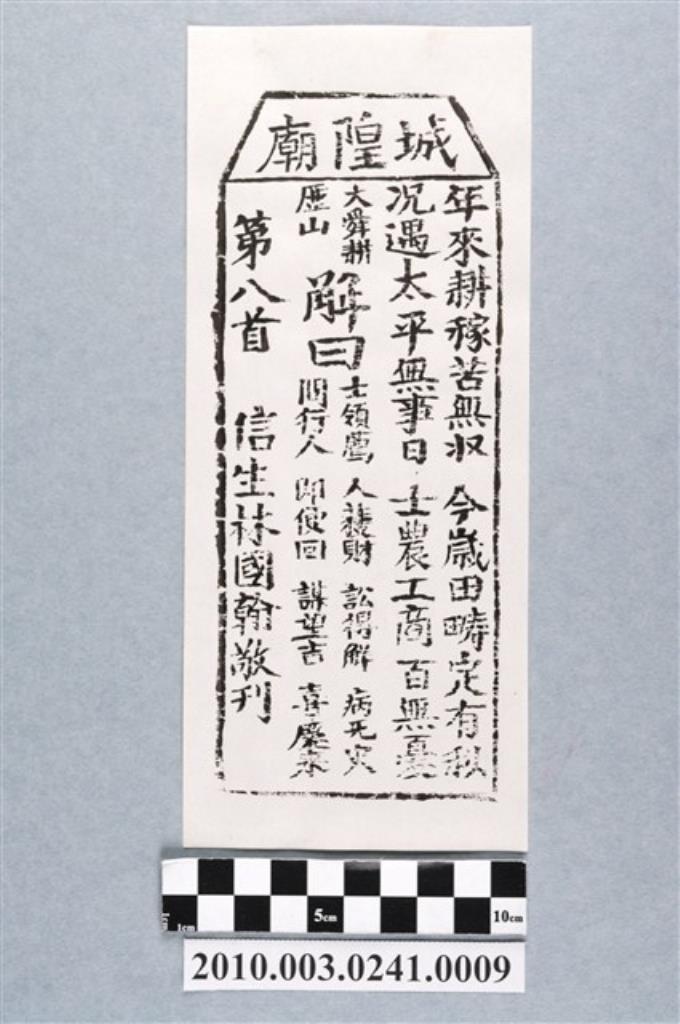 城隍廟
年來耕稼苦無收 今歲田疇定有秋
況遇太平無事日 士農工商百無憂
大舜耕
歷山
解曰
士領薦 人獲財 訟得解 病无災
問行人 即便回 謀望吉 喜慶來
第八首 信生林國翰敬刊
5cm
10cm
1cm
2010.003.0241.0009